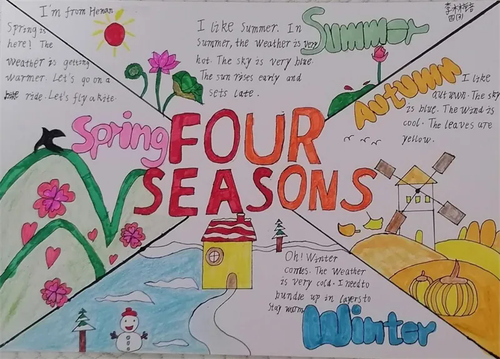 I'm from Henan
Spring is
here! The
weather is getting
warmer. Let's go on a
ride. Let's fly a kite.
I like Summer. In
Summer, the weather is very
hot. The sky is very blue.
The sun rises early and
sets late.
Summer
四(3)
Autumn
I like
autumn. The sky
is blue. The wind is
cool. The leaves are
yellow.
Spring
FOUR
SEASONS
Oh! Winter
comes. The weather
is very cold. I need to
bundle up in layers to
stay warm
Winter